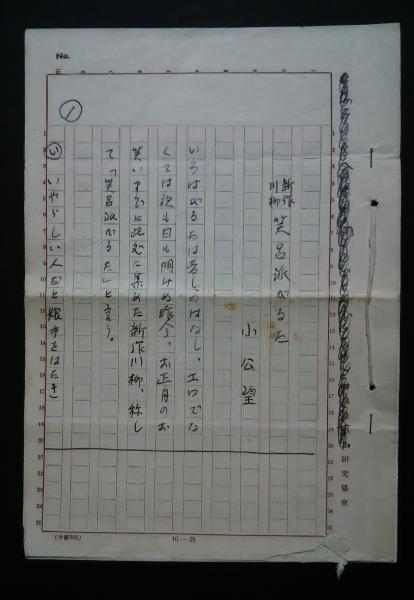 No.
①
新作
川柳 笑呂派かるた
小公望
いろはがるたは昔しのはなし、エロでな
くては夜も日も明けぬ昨今、お正月のお
笑い草に此処に集めた新作川柳、称し
て「笑呂派かるた」と言う。
(い) いやらしい人だと娘手をはたき
研究協會
10—25